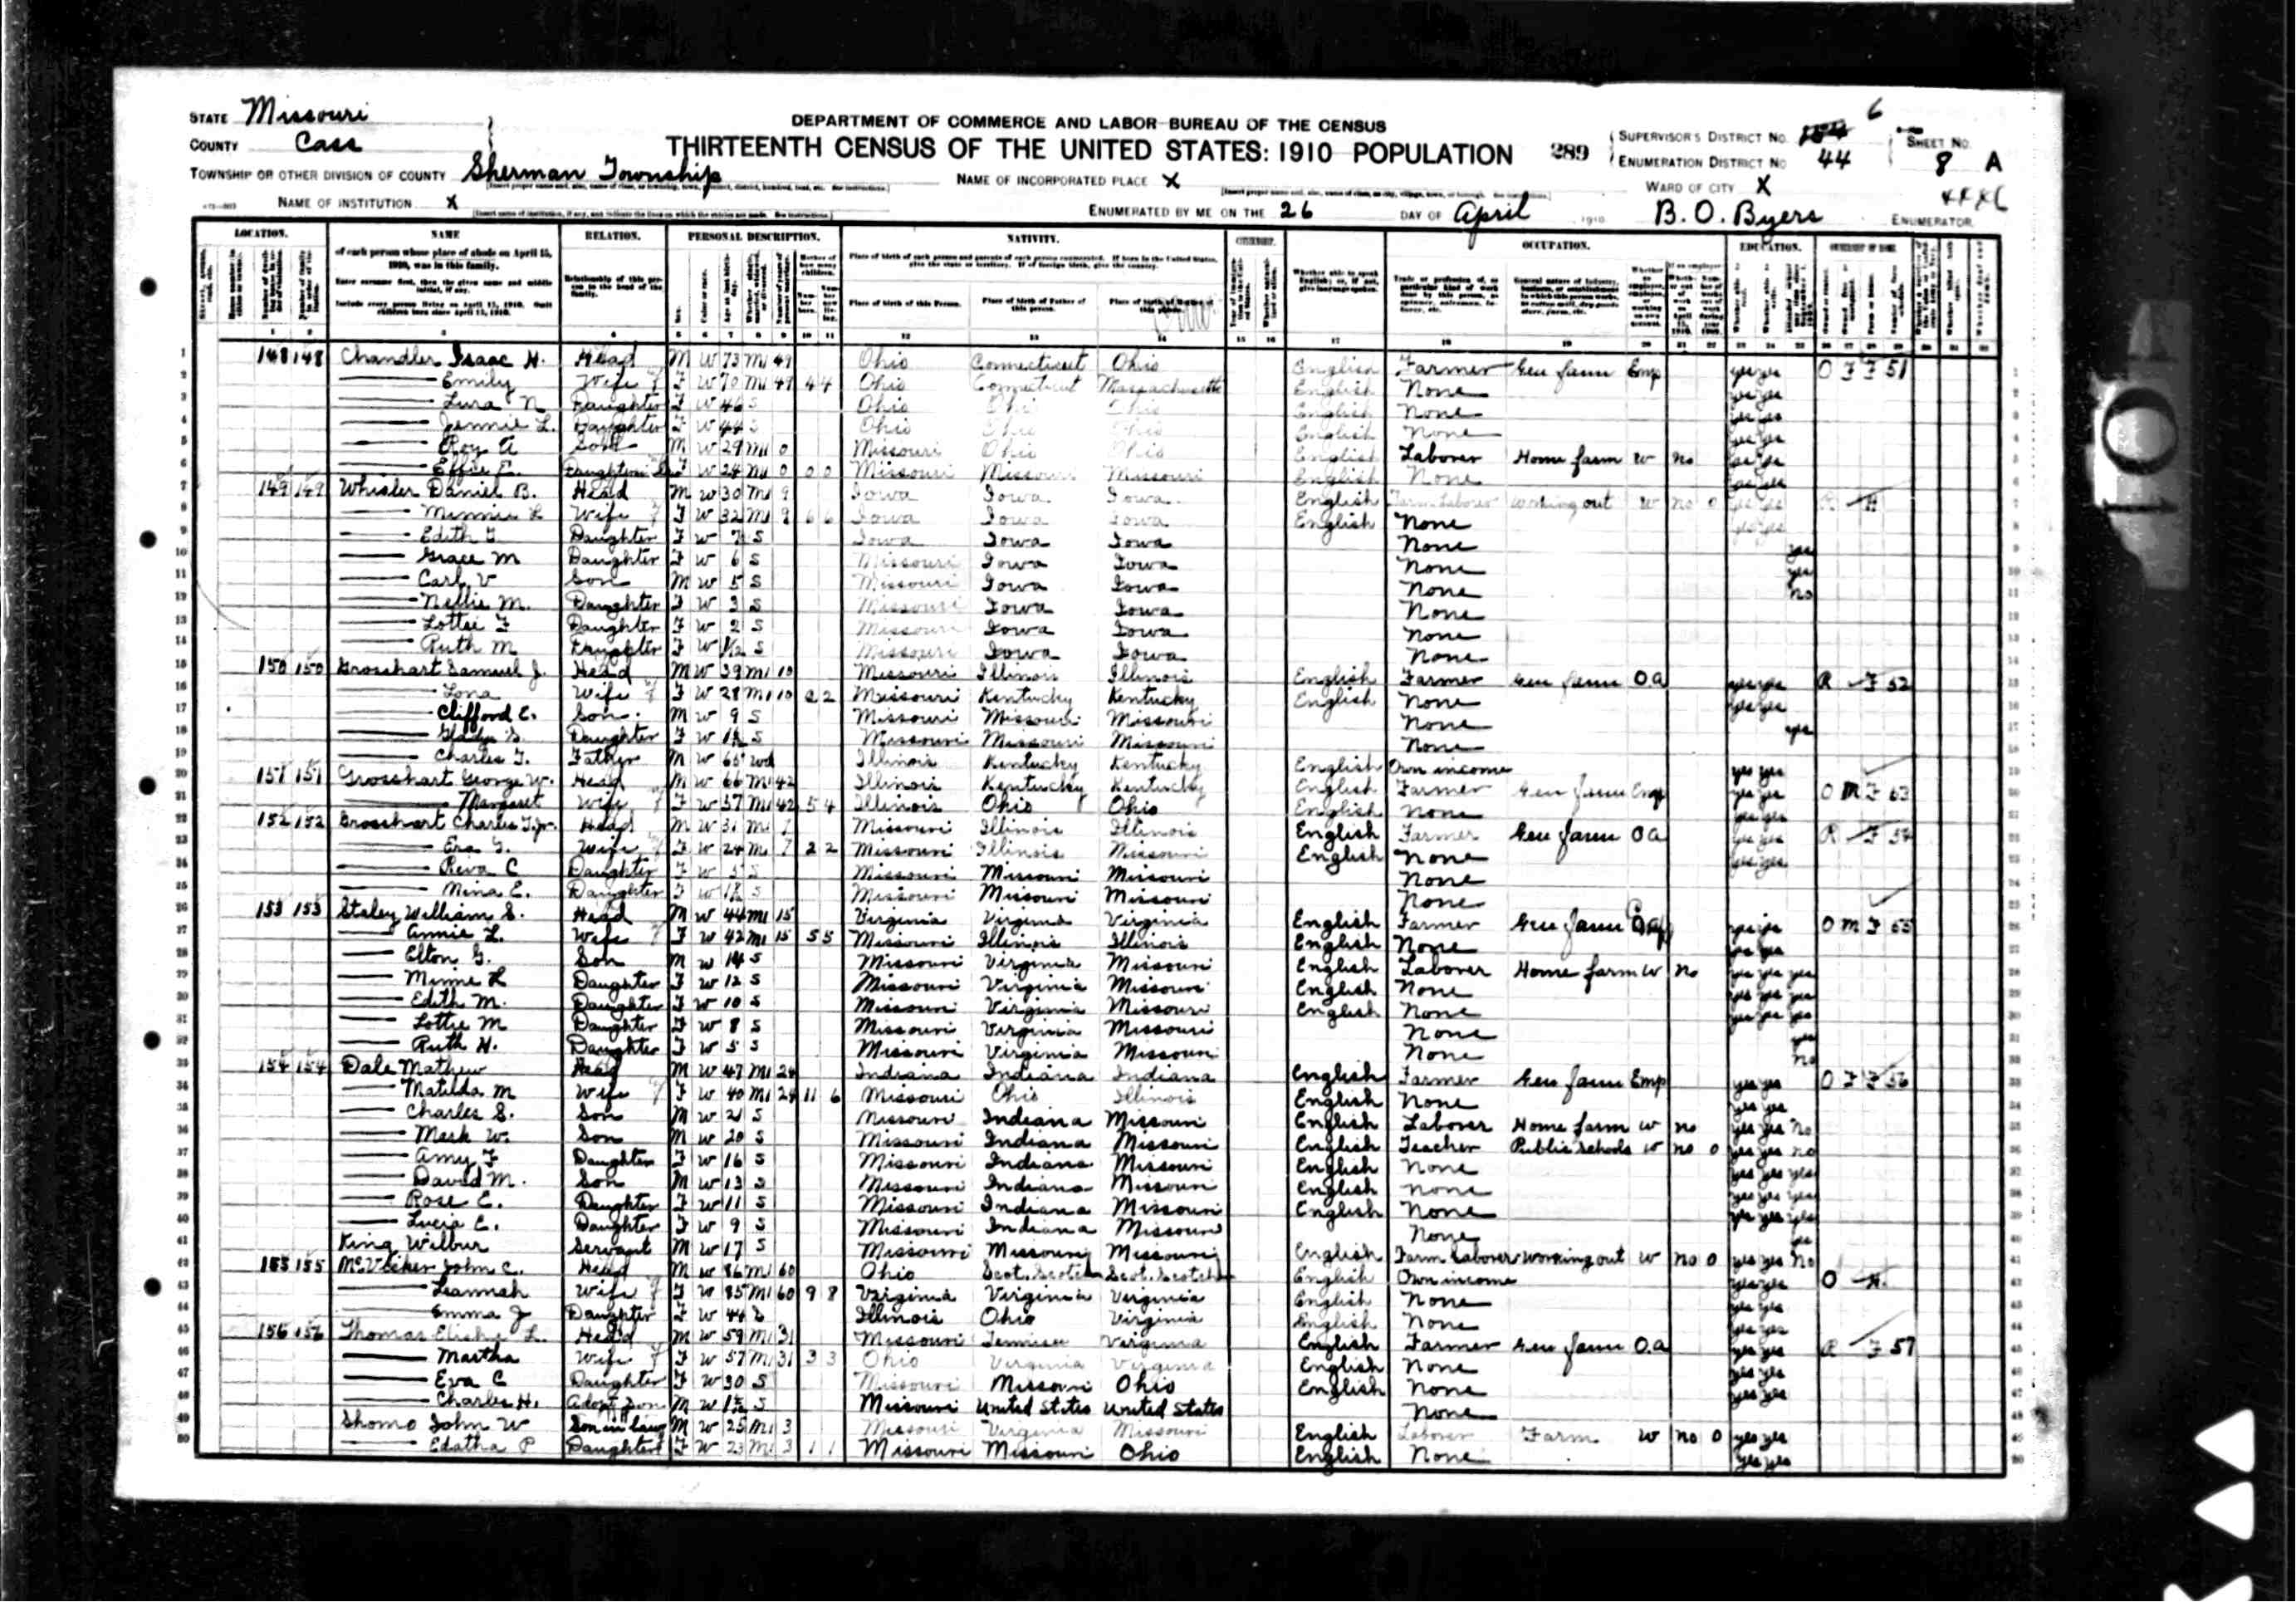 STATE Missouri
COUNTY Cass
TOWNSHIP OR OTHER DIVISION OF COUNTY Sherman Township
NAME OF INSTITUTION X
DEPARTMENT OF COMMERCE AND LABOR-BUREAU OF THE CENSUS
THIRTEENTH CENSUS OF THE UNITED STATES: 1910 POPULATION
289
NAME OF INCORPORATED PLACE X
ENUMERATED BY ME ON THE 26 DAY OF April 1910. B. O. Byers ENUMERATOR
6
SUPERVISOR'S DISTRICT NO.
ENUMERATION DISTRICT NO 44
WARD OF CITY X
SHEET NO.
8 A
LOCATION. NAME RELATION. PERSONAL DESCRIPTION. NATIVITY. CITIZENSHIP. OCCUPATION. EDUCATION. OWNERSHIP OF HOME.
of each person whose place of abode on April 15, 1910, was in this family.
Enter surname first, then the given name and middle initial, if any.
Include every person living on April 15, 1910. Omit children born since April 15, 1910.
Relationship of this person to the head of the family.
Place of birth of each person and parents of each person enumerated. If born in the United States, give the state or territory. If of foreign birth, give the country.
Place of birth of this Person. Place of birth of Father of this person. Place of birth of Mother of this person.
148 148 Chandler Isaac H. Head M W 73 M1 49 Ohio Connecticut Ohio English Farmer Gen farm Emp yes yes O F F 51
Emily Wife F W 70 M1 49 4 4 Ohio Connecticut Massachusetts English None yes yes
Lura N Daughter F W 46 S Ohio Ohio Ohio English None yes yes
Jennie L. Daughter F W 44 S Ohio Ohio Ohio English None yes yes
Roy A Son M W 29 M1 0 Missouri Ohio Ohio English Laborer Home farm W no yes yes
Effie E. F W 24 M1 0 0 0 Missouri Missouri Missouri English None yes yes
149 149 Whisler Daniel B. Head M W 30 M1 9 Iowa Iowa Iowa English Farm Laborer Working out W no 0 yes yes R H
Minnie L Wife F W 32 M1 9 6 6 Iowa Iowa Iowa English None yes yes
Edith F Daughter F W 7 S Iowa Iowa Iowa None yes
Grace M Daughter F W 6 S Missouri Iowa Iowa None yes
Carl V Son M W 5 S Missouri Iowa Iowa None no
Nellie M. Daughter F W 3 S Missouri Iowa Iowa None
Lottie F Daughter F W 2 S Missouri Iowa Iowa None
Ruth M Daughter F W S Missouri Iowa Iowa None
150 150 Grosshart Samuel J. Head M W 39 M1 10 Missouri Illinois Illinois English Farmer Gen farm O.A yes yes R F 52
Lona Wife F W 28 M1 10 2 2 Missouri Kentucky Kentucky English None yes yes
Clifford E. Son M W 9 S Missouri Missouri Missouri None yes
Gladys Daughter F W S Missouri Missouri Missouri None
Charles T. Father M W 65 wd Illinois Kentucky Kentucky English Own income yes yes
151 151 Grosshart George W. Head M W 66 M1 42 Illinois Kentucky Kentucky English Farmer Gen farm Emp yes yes O M F 53
Margaret Wife F W 57 M1 42 5 4 Illinois Ohio Ohio English None yes yes
152 152 Grosshart Charles T. Jr. Head M W 31 M1 7 Missouri Illinois Illinois English Farmer Gen farm O A yes yes R F 54
Era G. Wife F W 24 M1 7 2 2 Missouri Illinois Missouri English None yes yes
Reva C Daughter F W S Missouri Missouri Missouri None
Mina E. Daughter F W S Missouri Missouri Missouri None
153 153 Staley William S. Head M W 44 M1 15 Virginia Virginia Virginia English Farmer Gen farm yes yes O M F 55
Annie L. Wife F W 42 M1 15 5 5 Missouri Illinois Illinois English None yes yes
Elton G. Son M W 14 S Missouri Virginia Missouri English Laborer Home farm W no yes yes yes
Minnie L Daughter F W 12 S Missouri Virginia Missouri English None yes yes yes
Edith M. Daughter F W 10 S Missouri Virginia Missouri English None yes yes yes
Lottie M Daughter F W 8 S Missouri Virginia Missouri None yes
Ruth H. Daughter F W 5 S Missouri Virginia Missouri None no
154 154 Dale Mathew Head M W 47 M1 24 Indiana Indiana Indiana English Farmer Gen farm Emp yes yes O F F 56
Matilda M Wife F W 40 M1 24 11 6 Missouri Ohio Illinois English None yes yes
Charles S. Son M W 21 S Missouri Indiana Missouri English Laborer Home farm W no yes yes no
Mark W. Son M W 20 S Missouri Indiana Missouri English Teacher Public Schools W no 0 yes yes no
Amy F Daughter F W 16 S Missouri Indiana Missouri English None yes yes yes
David M. Son M W 13 S Missouri Indiana Missouri English None yes yes yes
Rose E. Daughter F W 11 S Missouri Indiana Missouri English None yes yes yes
Lucia E. Daughter F W 9 S Missouri Indiana Missouri None yes
King Wilbur Servant M W 17 S Missouri Missouri Missouri English Farm Laborer Working out W no 0 yes yes no
155 155 McVicker John C. Head M W 86 M1 60 Ohio Scot. Scotch Scot. Scotch English Own income yes yes O H
Leannah Wife F W 85 M1 60 9 8 Virginia Virginia Virginia English None yes yes
Emma J Daughter F W 44 Illinois Ohio Virginia English None yes yes
156 156 Thomas Elisha L. Head M W 59 M1 31 Missouri Virginia English Farmer Gen farm O.A yes yes R F 57
Martha Wife F W 57 M1 31 3 3 Ohio Virginia Virginia English None yes yes
Eva C Daughter F W 30 S Missouri Missouri Ohio English None yes yes
Charles H. Adopt Son M W S Missouri United States United States None
Shomo John W Son in law M W 25 M1 3 Missouri Virginia Missouri English Laborer Farm W no 0 yes yes
Edatha P Daughter F W 23 M1 3 1 1 Missouri Missouri Ohio English None yes yes
10